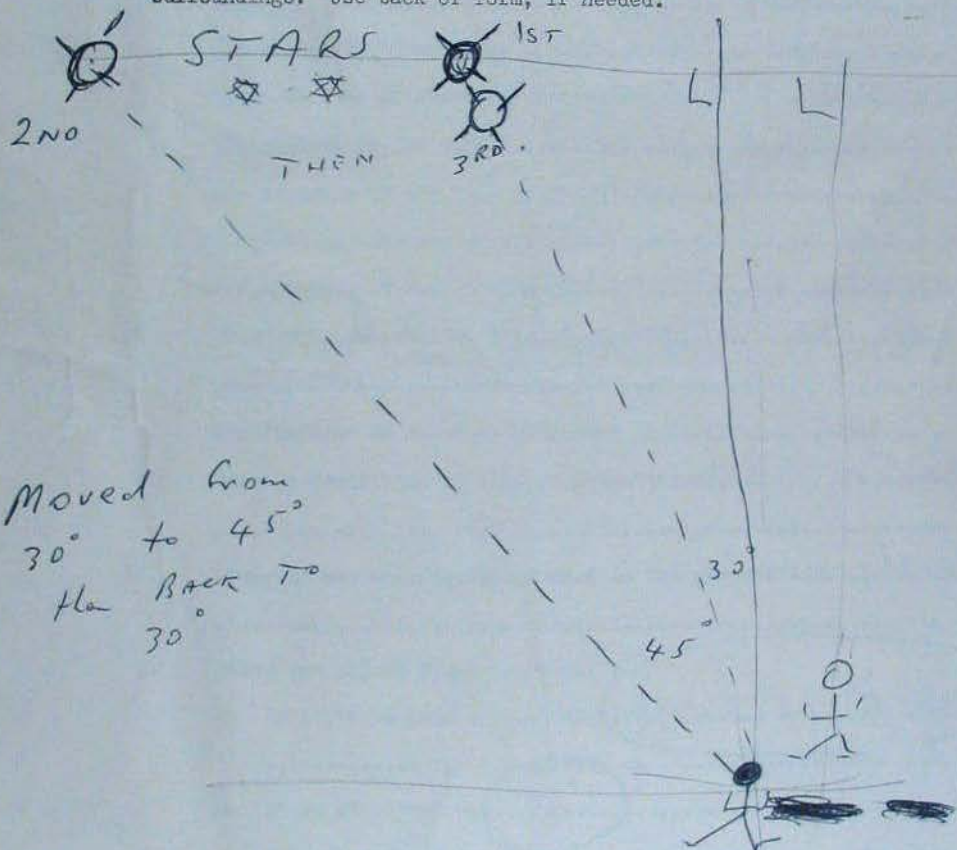 surroundings. Use back of form, if needed.
STARS
1ST
2ND
THEN
3RD.
Moved from
30° to 45°
then BACK TO
30°
30°
45°